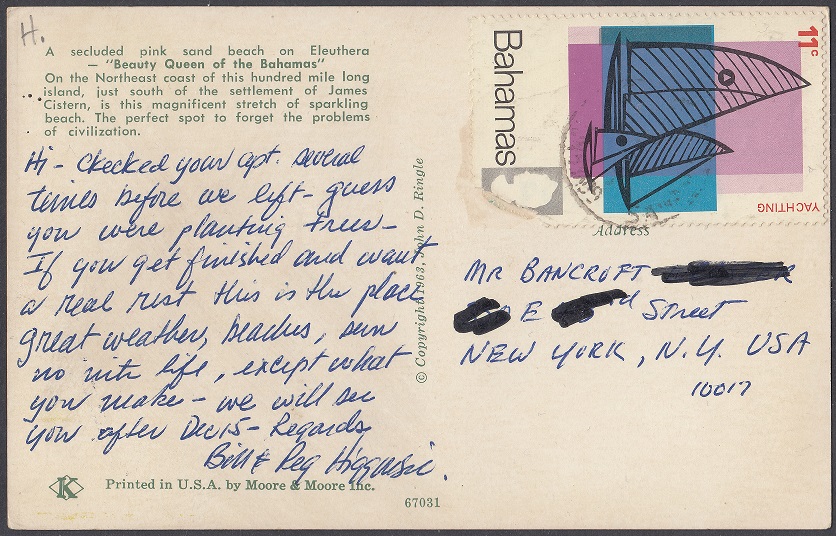 H.
A secluded pink sand beach on Eleuthera
— "Beauty Queen of the Bahamas"
On the Northeast coast of this hundred mile long
island, just south of the settlement of James
Cistern, is this magnificent stretch of sparkling
beach. The perfect spot to forget the problems
of civilization.
Hi - Checked your apt. several
times before we left - guess
you were planting trees -
If you get finished and want
a real rest this is the place
great weather, beaches, sun
no nite life, except what
you make - we will see
you after Dec 15 - Regards
Bill & Peg
Printed in U.S.A. by Moore & Moore Inc.
K
67031
© Copyright 1963, John D. Ringle
Bahamas
11c
YACHTING
Address
MR BANCROFT
E rd Street
NEW YORK, N.Y. USA
10017